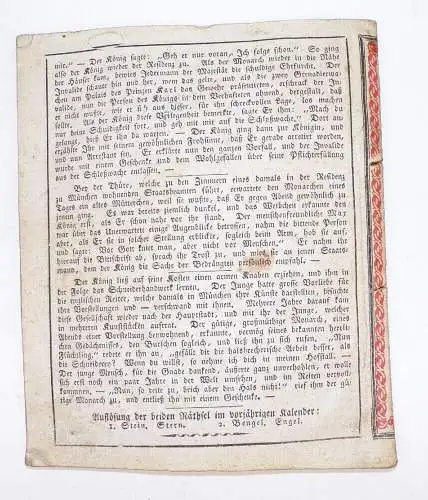 mir." — Der König sagte: „Geh er nur voran, Ich folge schon." So ging
also der König wieder der Residenz zu. Als der Monarch wieder in die Nähe
der Häuser kam, bewies Jedermann der Majestät die schuldige Ehrfurcht. Der
Invalide schaute hin und her, wem das gelte, und als die zwey Grenadierwa-
chen am Palais des Prinzen Karl das Gewehr präsentirten, erschrack der In-
valide, nun die Person des Königs in dem Verhafteten ahnend, dergestalt, daß
er nicht wußte, wie er sich aus dieser, für ihn schreckvollen Lage, los machen
sollte. Als der König diese Verlegenheit bemerkte, sagte Er ihm: „Mach du
nur deine Schuldigkeit fort, und geh mit mir auf die Schloßwache." Dort an-
gelangt, hieß Er ihn da warten. — Der König ging dann zur Königin, und
erzählte Ihr mit seinem gewöhnlichen Frohsinne, daß Er gerade arretirt worden,
und nun Arrestant sey. Er erklärte nun den ganzen Vorfall, und der Invalide
wurde mit einem Geschenke und dem Wohlgefallen über seine Pflichterfüllung
aus der Schloßwache entlassen. —
Bey der Thüre, welche zu den Zimmern eines damals in der Residenz
zu München wohnenden Staatsbeamten führt, erwartete den Monarchen eines
Tages ein altes Mütterchen, weil sie wußte, daß Er gegen Abend gewöhnlich zu
jenen ging. Es war bereits ziemlich dunkel, und das Weibchen erkannte den
König erst, als Er schon nahe vor ihr stand. Der menschenfreundliche Max
war über das Unerwartete einige Augenblicke betroffen, nahm die bittende Person
aber, als Er sie in solcher Stellung erblickte, sogleich beym Arm, hob sie auf,
und sagte: „Vor Gott kniet man, aber nicht vor Menschen." Er nahm ihr
hierauf die Bittschrift ab, sprach ihr Trost zu, und wies sie an jenen Staats-
mann, dem der König die Sache der Bedrängten empfahl. —
Der König ließ auf seine Kosten einen armen Knaben erziehen, und ihn in
der Folge das Schneiderhandwerk lernen. Der Junge hatte große Vorliebe für
die englischen Reiter, welche damals in München ihre Künste darstellten, besuchte
ihre Vorstellungen und — verschwand mit ihnen. Mehrere Jahre darauf kam
diese Gesellschaft wieder nach der Hauptstadt, und mit ihr der Junge, welcher
in mehreren Kunststücken auftrat. Der gütige, großmüthige Monarch, eines
Abends einer Vorstellung beywohnend, erkannte, vermög seines bekannten herrli-
chen Gedächtnisses, den Burschen sogleich, und ließ ihn zu sich rufen. „Nun
Flüchtling," redete er ihn an, „gefällt dir die halsbrecherische Arbeit besser, als
die Schneiderey? Wenn du willst, so nehme ich dich in meinen Hofstall. —
Der junge Mensch, für die Gnade dankend, äußerte ganz unverhohlen, er wolle
sich erst noch ein paar Jahre in der Welt umsehen, und im Reiten vervoll-
kommnen. — „Nun, so reite zu, brich aber den Hals nicht!" rief ihm der gü-
tige Monarch zu, und entließ ihn mit einem Geschenke. —
Auflösung der beiden Räthsel im vorjährigen Kalender:
1. Stein, Stern. 2. Bengel, Engel.